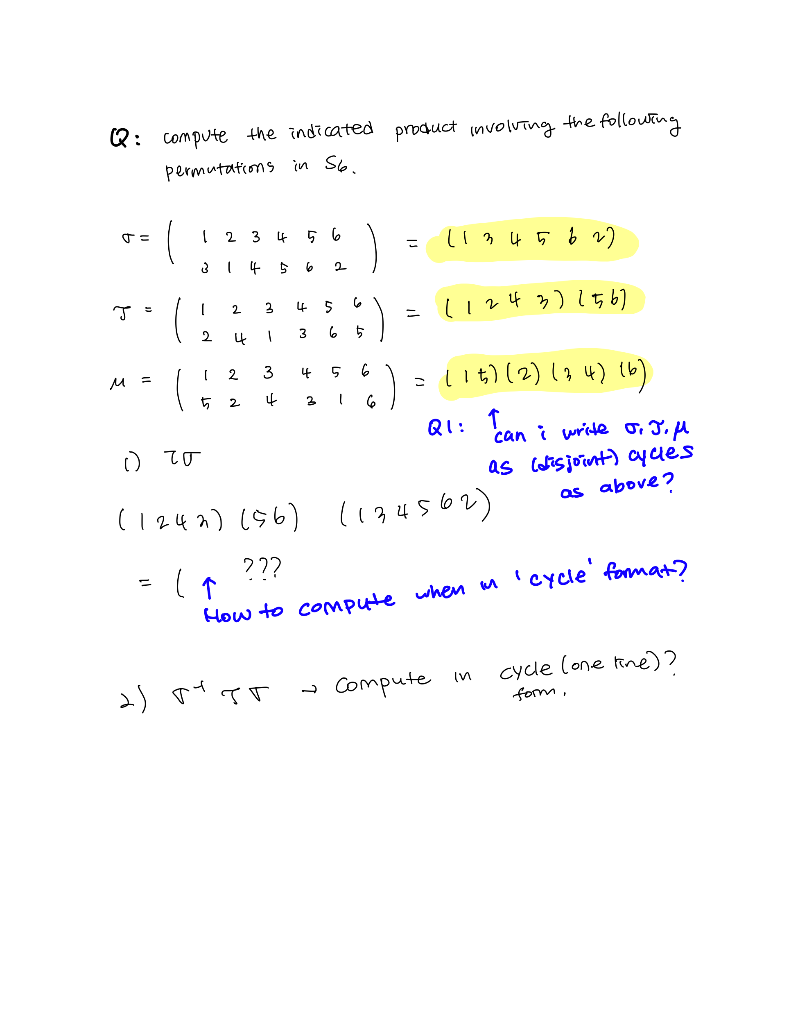 Q: compute the indicated product involving the following
permutations in S6.
σ = ( 1 2 3 4 5 6 ) = (1 3 4 5 6 2)
3 1 4 5 6 2
τ = ( 1 2 3 4 5 6 ) = (1 2 4 3) (5 6)
2 4 1 3 6 5
μ = ( 1 2 3 4 5 6 ) = (1 5) (2) (3 4) (6)
5 2 4 3 1 6
Q1: ↑ can i write σ, τ, μ
as (disjoint) cycles
as above?
1) τσ
(1 2 4 3) (5 6) (1 3 4 5 6 2)
= ( ???
↑ How to compute when in 'cycle' format?
2) σ⁻¹ τ σ → compute in cycle (one line)?
form.